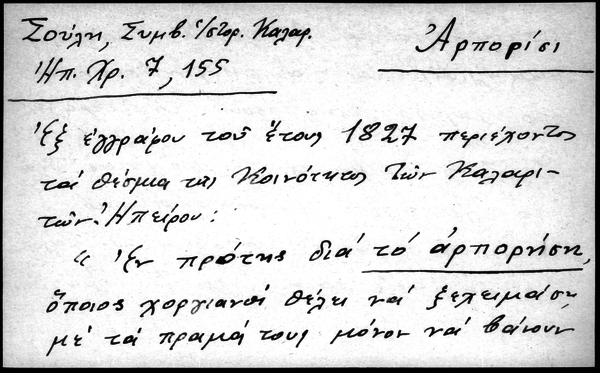 Σούλη, Συμβ. ἱστορ. Καλαρ.
Ἀρπορίσι
Ἠπ. Χρ. 7, 155
Ἐξ ἐγγράφου τοῦ ἔτους 1827 περιέχοντος
τά θέσμια τῆς Κοινότητος τῶν Καλαρι-
τῶν Ἠπείρου:
« Ἐν πρότης διά τό ἀρπορήση,
ὅποιος χοργιανοί θέλει νά ξεχειμάση
μέ τά πραμά τους μόνον νά βάιουν